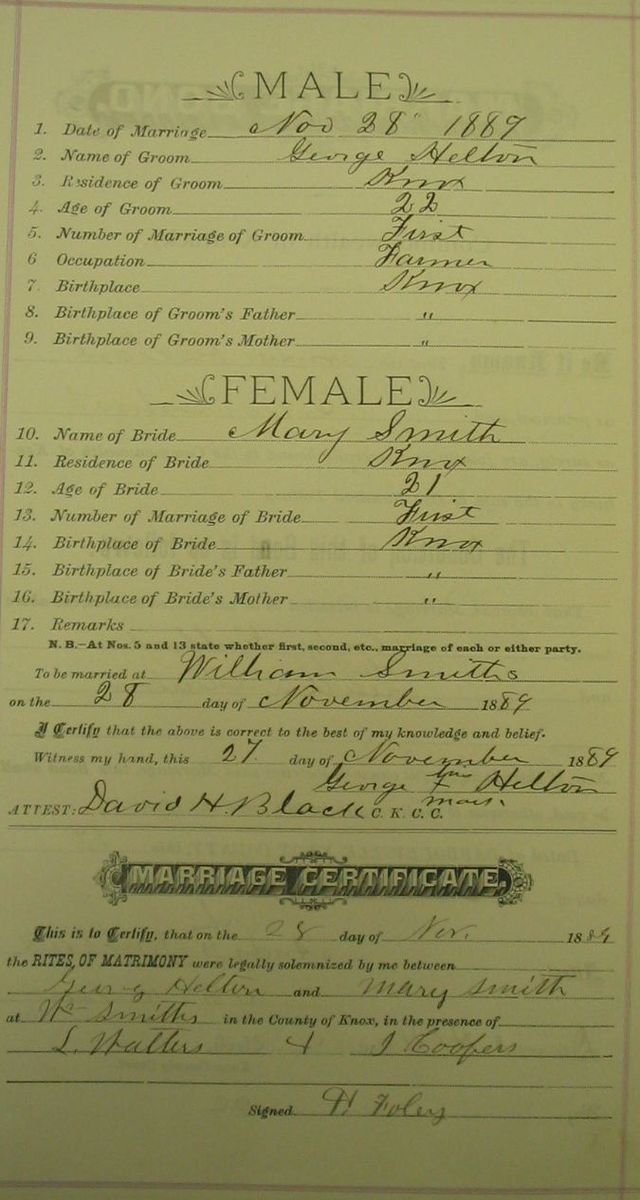 MALE
1. Date of Marriage Nov 28" 1889
2. Name of Groom George Helton
3. Residence of Groom Knox
4. Age of Groom 22
5. Number of Marriage of Groom First
6 Occupation Farmer
7. Birthplace Knox
8. Birthplace of Groom's Father "
9. Birthplace of Groom's Mother "
FEMALE
10. Name of Bride Mary Smith
11. Residence of Bride Knox
12. Age of Bride 21
13. Number of Marriage of Bride First
14. Birthplace of Bride Knox
15. Birthplace of Bride's Father "
16. Birthplace of Bride's Mother "
17. Remarks
N. B.—At Nos. 5 and 13 state whether first, second, etc., marriage of each or either party.
To be married at William Smiths
on the 28 day of November 1889
I Certify that the above is correct to the best of my knowledge and belief.
Witness my hand, this 27 day of November 1889
George his Helton
mark
ATTEST: David H. Black C. K. C. C.
MARRIAGE CERTIFICATE.
This is to Certify, that on the 28 day of Nov. 1889
the RITES OF MATRIMONY were legally solemnized by me between
Georg Helton and Mary Smith
at Wm Smiths in the County of Knox, in the presence of
L. Walters & J Coopers
Signed H Foley